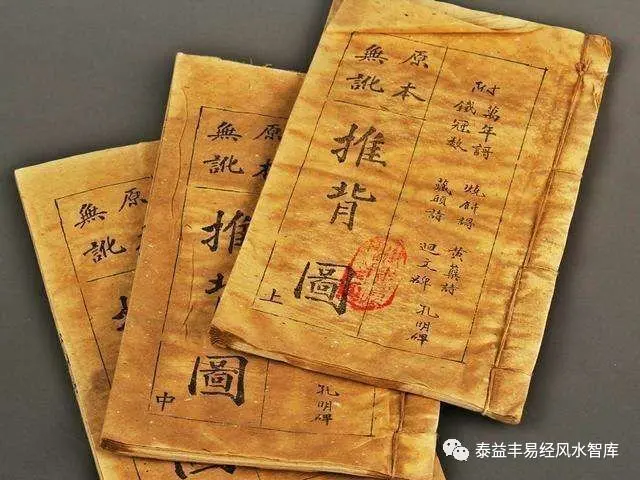 附
萬年謌 燒餅謌 黃蘗詩
鐵冠數 藏頭詩 迴文碑
孔明碑
原本
無訛
推背圖
上
原本
無訛
推背圖
中
孔明碑
原本
無訛
泰益丰易经风水智库